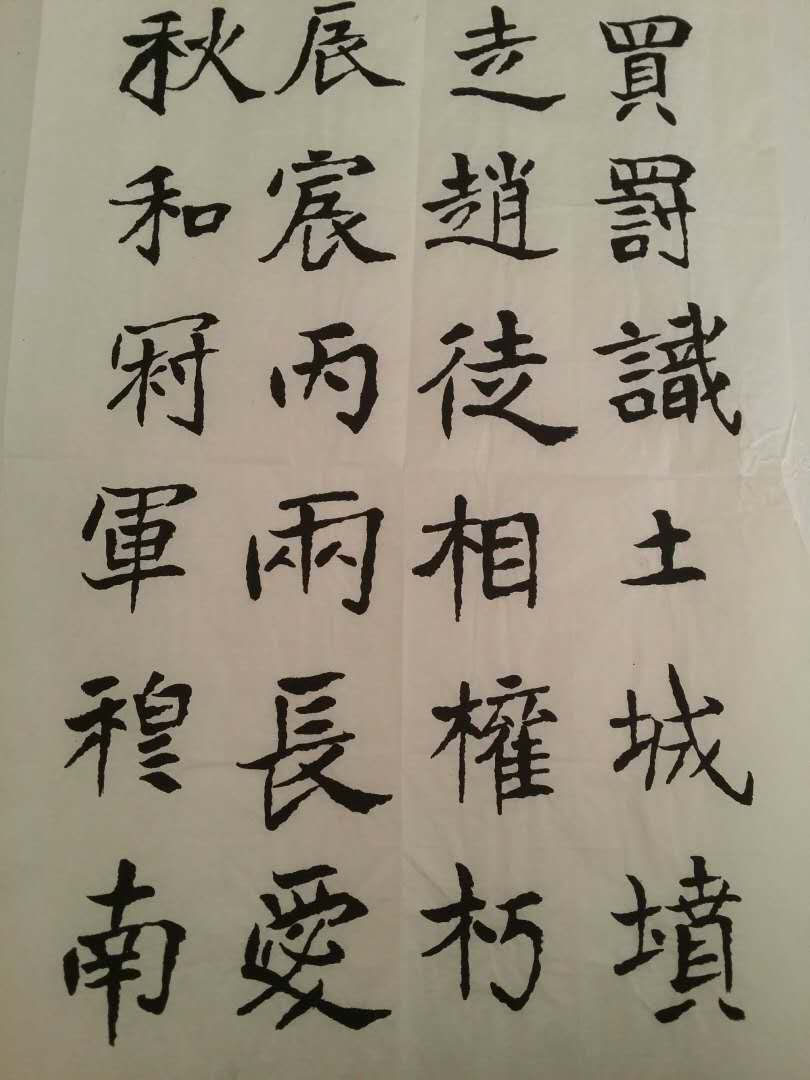 買罰識土城墳
走趙徒相權朽
辰宸丙兩長愛
秋和冠軍穆南